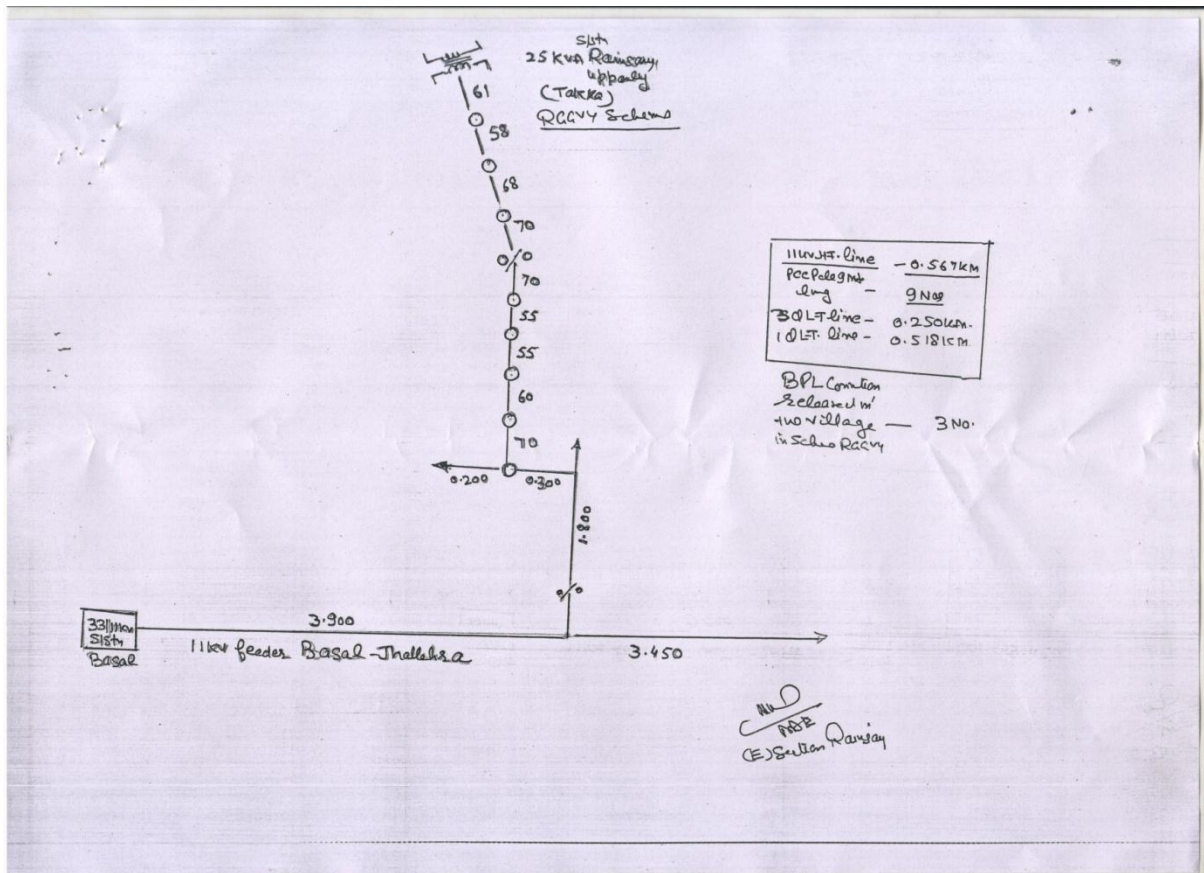 S/stn
25 KVA Rainsary
upparly
(Takka)
RGGVY Scheme
61
58
68
70
70
55
55
60
70
0.200
0.300
1.800
11KV HT. line - 0.567KM
PCC Pole 9 Mt
long - 9 Nos
3Ø LT line - 0.250KM.
1Ø LT line - 0.518KM
BPL
released in
two village — 3 No.
in Scheme RGGVY
3.900
S/Stn
Basal
11KV feeder Basal-Thallehra
3.450
(E) Section Rainsary